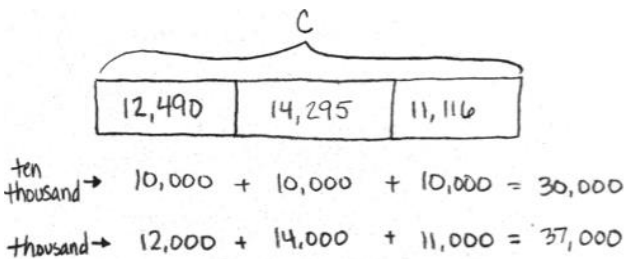 C
12,490 14,295 11,116
ten thousand → 10,000 + 10,000 + 10,000 = 30,000
thousand → 12,000 + 14,000 + 11,000 = 37,000